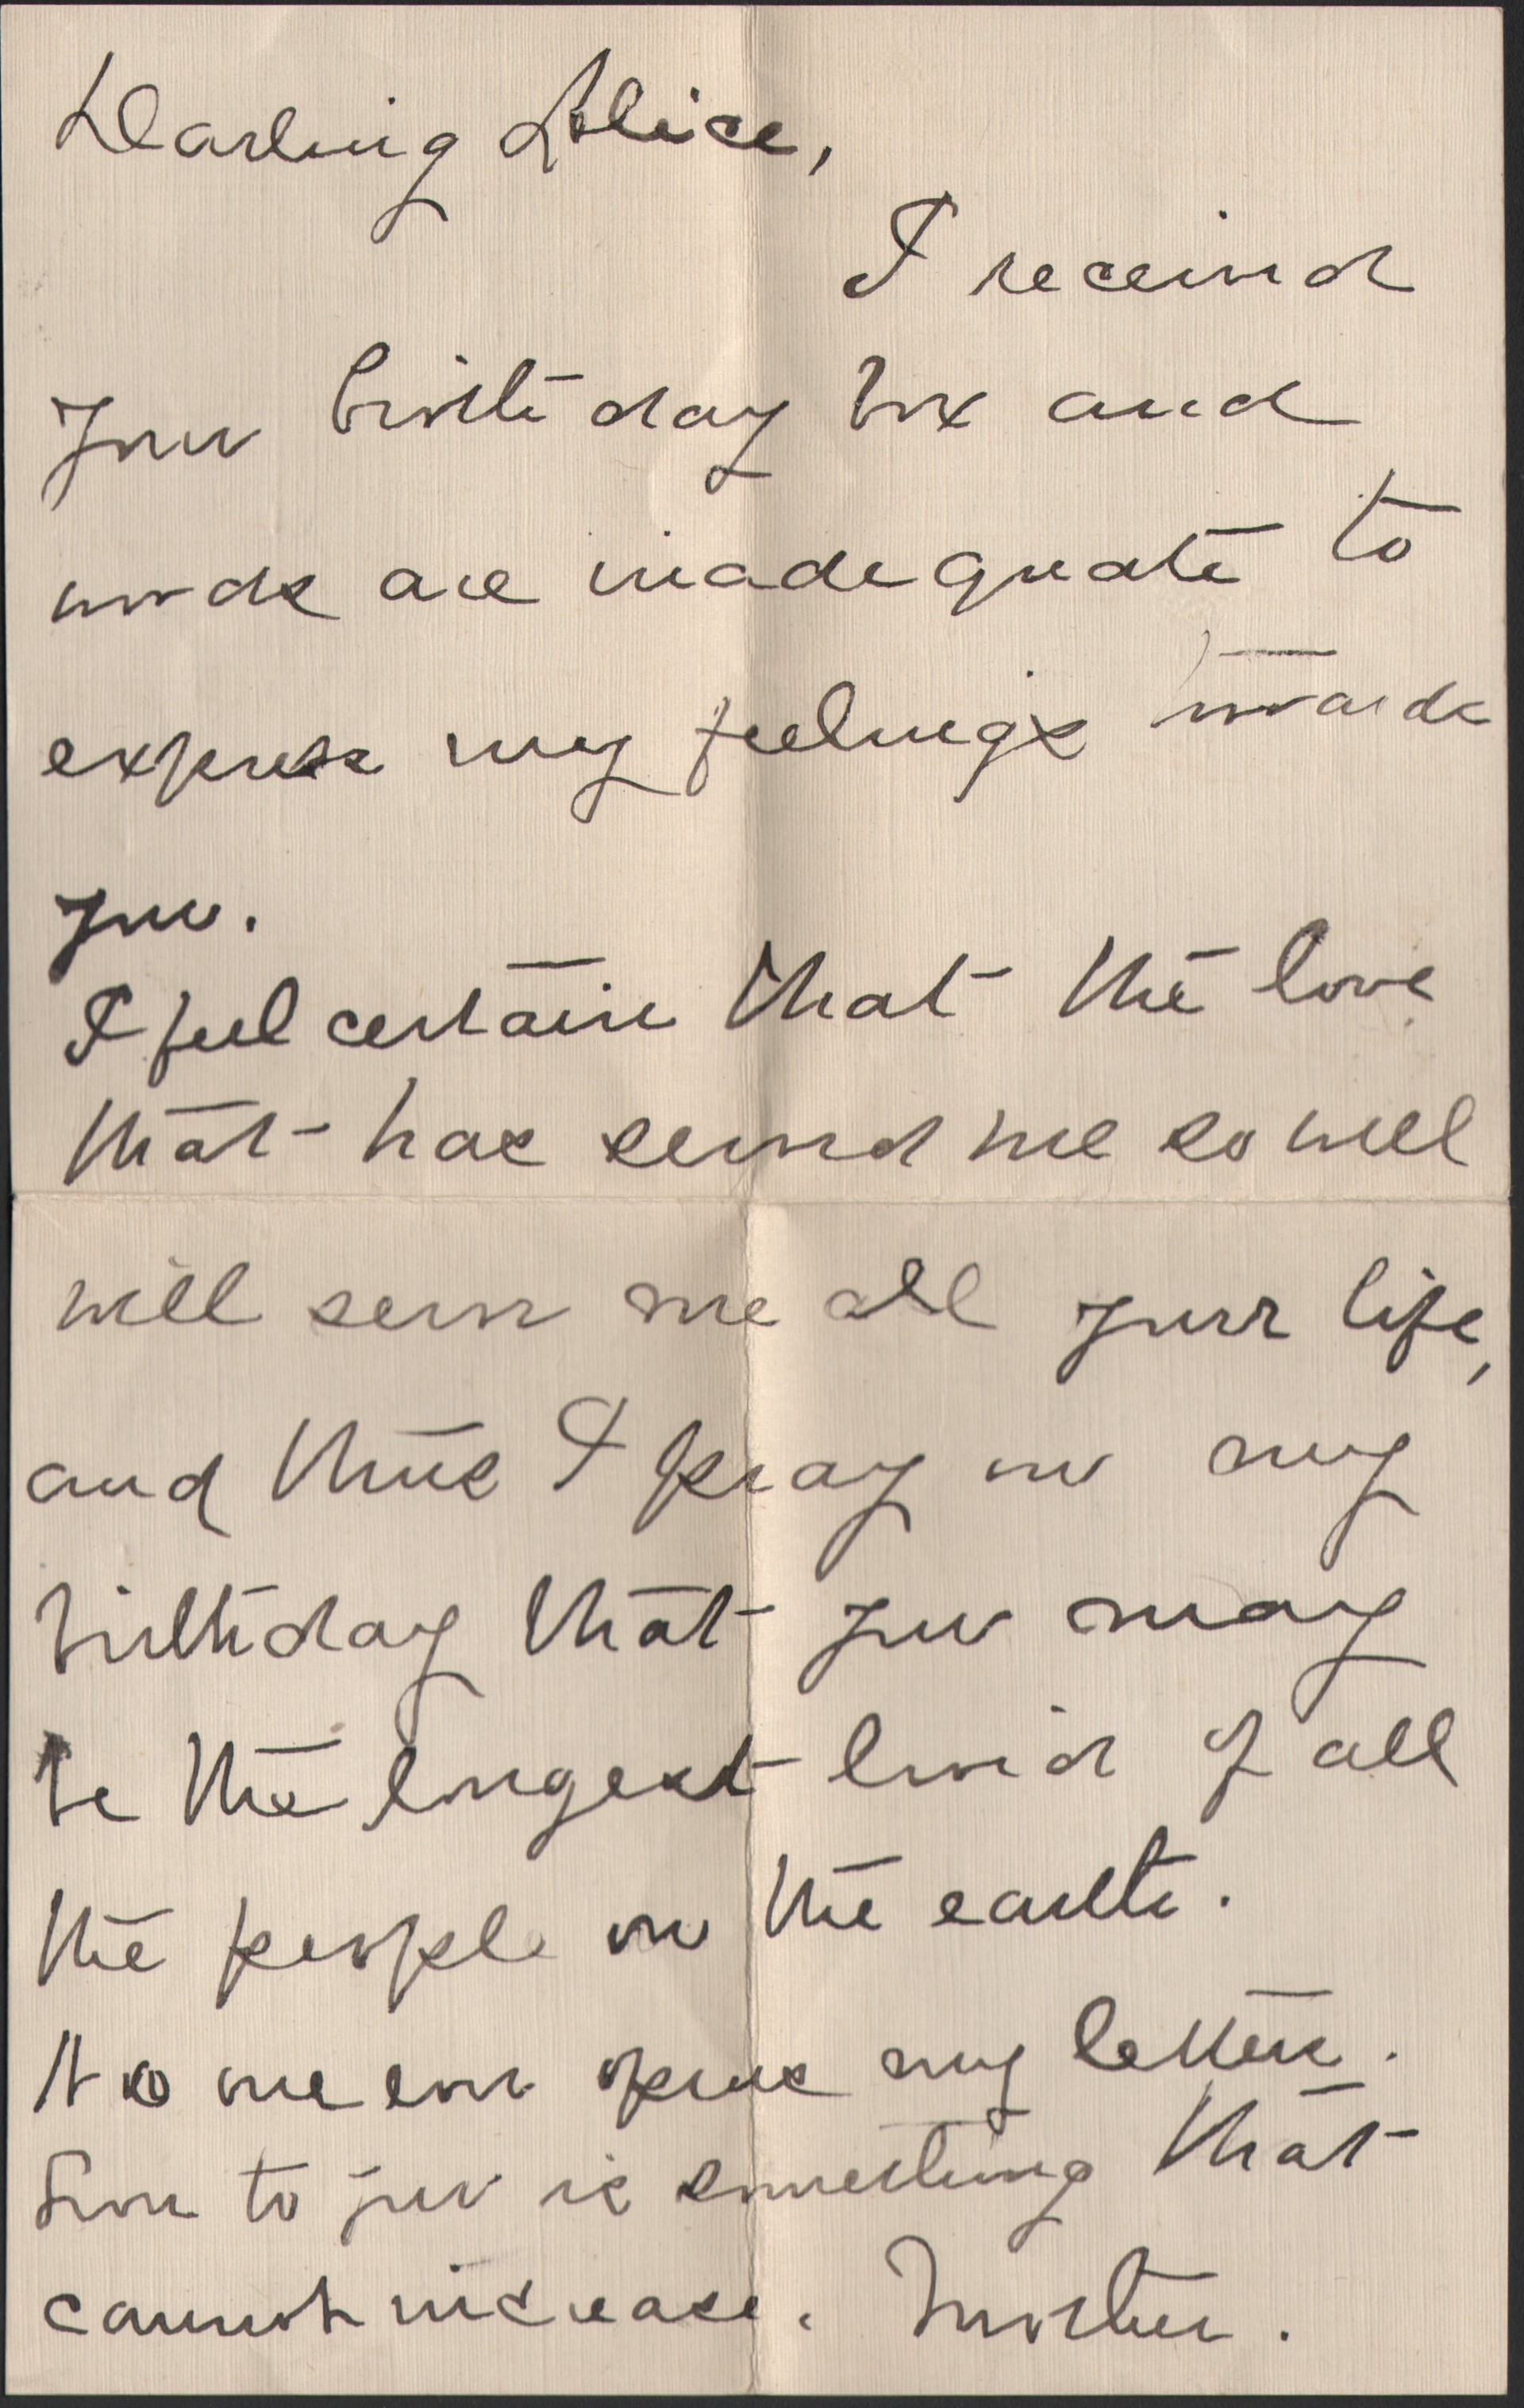 Darling Alice,
I received
your birthday box and
words are inadequate to
express my feelings towards
you.
I feel certain that the love
that has served me so well
will serve me all your life,
and thus I pray on my
birthday that you may
be the longest lived of all
the people on the earth.
No one ever opens my letters.
Love to you is something that
cannot increase. Brother.